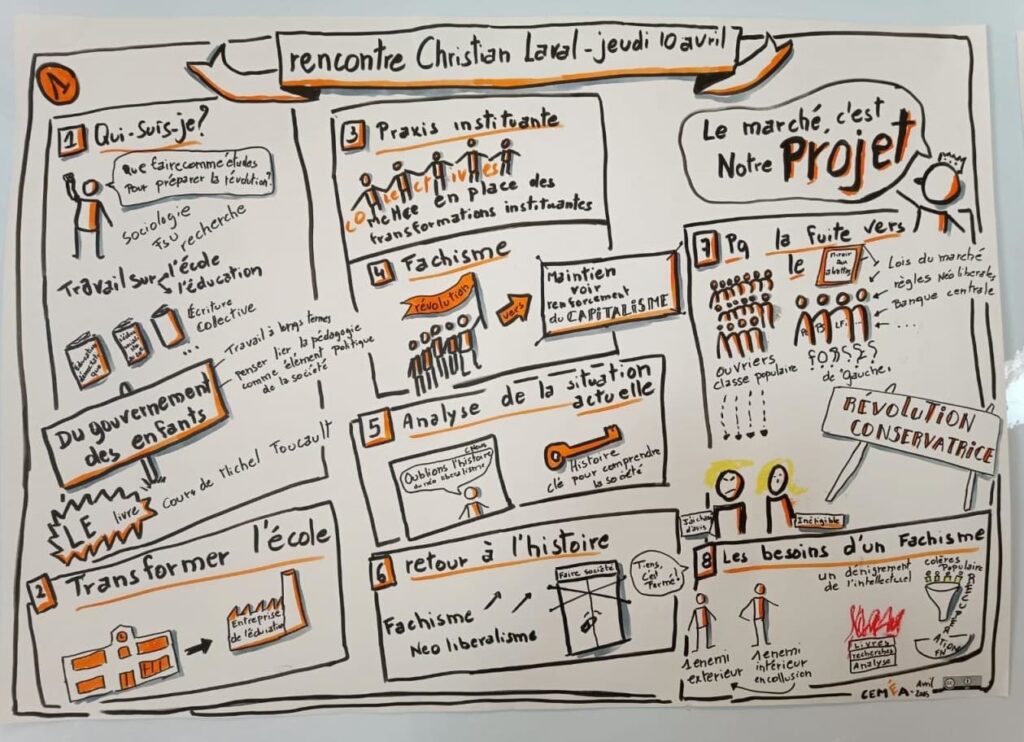 rencontre Christian Laval - jeudi 10 avril
1
1 Qui-suis-je?
Que faire comme études
Pour préparer la révolution?
Sociologie
FSU recherche
Travail sur l'école
l'éducation
Ecriture
collective
...
Travail à longs termes
penser lier la pédagogie
comme élément Politique
de la société
Du gouvernement
des enfants
LE livre
Cours de Michel Foucault
2 Transformer l'école
Entreprise
de l'éducation
3 Praxis instituante
collectivités
mettre en place des
transformations instituantes
4 Fachisme
révolution
vers
Maintien
voir
renforcement
du CAPITALISME
5 Analyse de la situation
actuelle
CNews
Oublions l'histoire
du néo liberalisme
Histoire
clé pour comprendre
la société
6 retour à l'histoire
Fachisme
Neo liberalisme
Faire société
Tiens,
c'est
Fermé!
Le marché, c'est
Notre Projet
7 Pq la fuite vers
le
Miroir
aux
alouettes
Lois du marché
règles Néo liberales
Banque centrale
....
ouvriers
classe populaire
de "Gauche"
RÉVOLUTION
CONSERVATRICE
J'ai changé
d'avis
Inéligible
8 Les besoins d'un Fachisme
1 enemi
exterieur
1 enemi
intérieur
en collusion
un dénigrement
de l'intellectuel
Livres
recherches
Analyse
colères
Populaire
RECUPER
ATION
FN
CEMÉA - Avril
2025